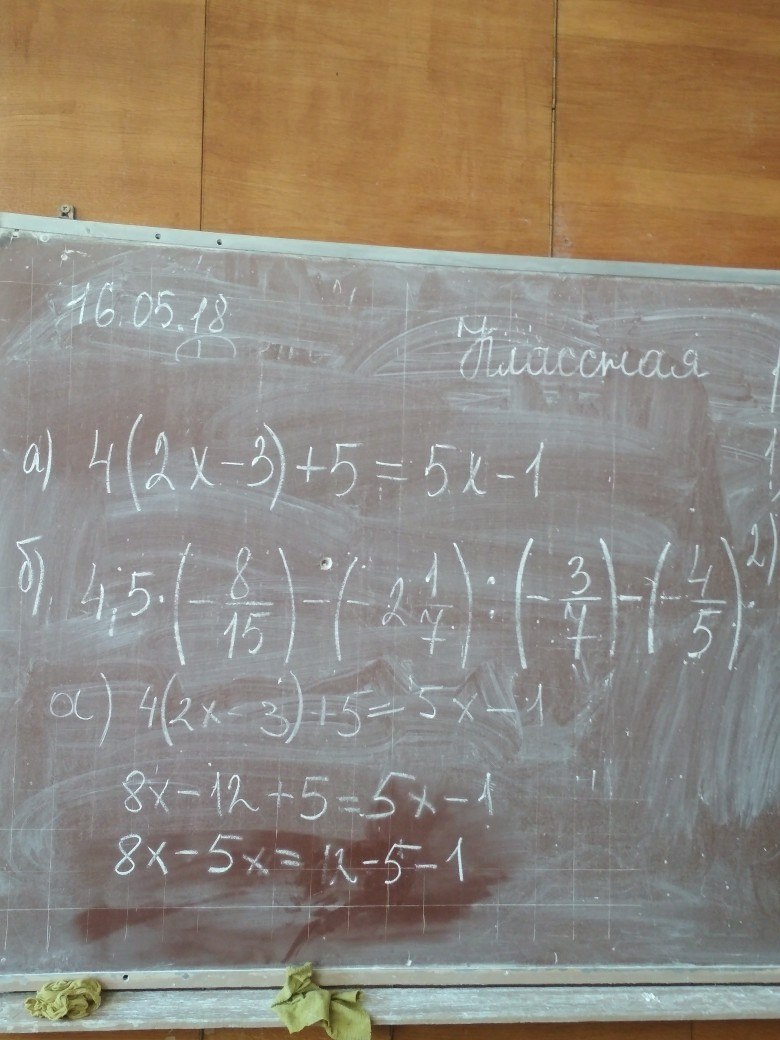 16.05.18
Классная
а) 4(2x-3)+5=5x-1
б) 4,5·(-8/15)-(-2 1/7):(-3/7)-(-4/5)·
2)
а) 4(2x-3)+5=5x-1
8x-12+5=5x-1
8x-5x=12-5-1